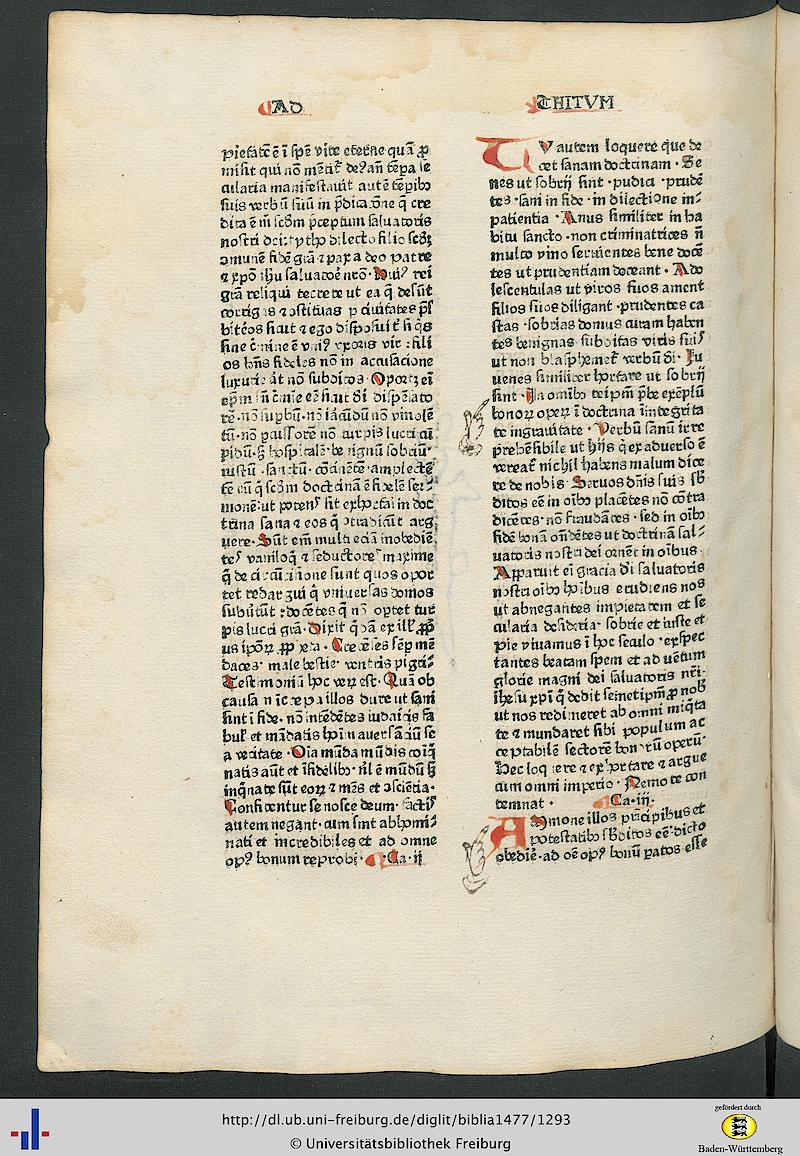 AD
pietatē ē ī spē vite eterne quā ꝓ
misit qui nō mētiꝉ deꝰ añ tēpa se
cularia manifestauit autē tēpibꝰ
suis verbū suū in p̄dicatōne q̄ cre
dita ē m̄ scd̄m p̄ceptum saluatoris
nostri dei tytho dilecto filio scd̄ꝫ
ꝯmunē fidē grā ⁊ pax a deo patre
⁊ xp̄o ihū saluatoē nrō · Huiꝰ rei
grā reliqui te crete ut ea q̄ desūt
corrigas ⁊ ꝯstituas p ciuitates p̄s
biteros sicut ⁊ ego disposui t̄ si q̄s
sine c̄mine ē vniꝰ vxoris vir · fili
os hn̄s fideles nō in accusacione
luxurie āt nō subditos · Oportꝫ eī
ep̄m sn̄ c̄mie eē sicut dī dispēsato
rē · nō supbū · nō iracūdū nō vinolē
tū · nō ꝑcussorē nō turpis lucri cu
pidū · sꝫ hospitalē · benignū sobriū ·
iustū · sanctū · cōtinētē · amplectē
tē eū q̄ scd̄m doctrinā ē fidelē ser⸗
monē: ut potens sit exhortai in doc
trina sana ⁊ eos q̄ ꝯtradicūt arg
uere · Sūt em̄ multi eciā inobediē
tes vaniloq̄ ⁊ seductores maxime
q̄ de circūcisione sunt quos opor
tet redargui q̄ vniuersas domos
subūtūt : docētes q̄ nō oportet tur
pis lucri grā · Dixit q̄dā ex ill ꝓpꝰ
us ipoꝝ ꝓpheta · Cretēses sēp mē
daces · male bestie · ventris pigri⸗
Testimoniū hoc verꝝ est · Quā ob
causā īcrepa illos dure ut sani
sint ī fide · nō intēdētes iudaicis fa
bul ⁊ mādatis hoīm auersātiū se
a veritate · Oīa mūda mūdis coīq̄
natis aūt et īfidelibꝰ · nl̄ ē mūdū sꝫ
inq̄nate sūt eoꝝ ⁊ mēs et ꝯsciētia ·
Confitentur se nosce deum · factis
autem negant · cum sint abhomi⸗
nati et incredibiles et ad omne
opꝰ bonum reprobi · Ca · ij
THITVM
TV autem loquere que de
cet sanam doctrinam · Se
nes ut sobrij sint · pudici · prudē
tes · sani in fide · in dilectione in⸗
patientia · Anus similiter in ha
bitu sancto · non criminatrices n̄
multo vino seruientes bene docē
tes ut prudentiam doceant · Ado
lescentulas ut viros suos ament
filios suos diligant · prudentes ca
stas · sobrias domus curam haben
tes benignas subditas viris suis
ut non blasphemet verbū dī · Iu
uenes similiter hortare ut sobrij
sint · In omībꝰ teipm̄ p̄be exēplū
bonoꝝ operꝝ ī doctrina ī integrita
te in grauitate · Verbū sanū irre
prehēsibile ut hijs q̄ ex aduerso ē
vereat̄ nichil habens malum dice
re de nobis · Seruos dn̄is suis sb̄
ditos eē in oībꝰ placētes nō cōtra
dicētes · nō fraudātes · sed in oībꝰ
fidē bonā on̄dētes ut doctrinā sal⸗
uatoris nostri dei ornēt in oībus ·
Apparuit eī gracia dī saluatoris
nostri oībꝰ hoībus erudiens nos
ut abnegantes impietatem et se
cularia desideria · sobrie et iuste et
pie viuamus ī hoc seculo · expec
tantes beatam spem et aduētum
glorie magni dei saluatoris nrī ·
ihesu xp̄i q̄ dedit semetipm̄ ꝓ nob̄
ut nos redimeret ab omni iniq̄ta
te ⁊ mundaret sibi populum ac
ceptabilē sectorē bonorū operū ·
Hec loquere ⁊ exhortare ⁊ argue
cum omni imperio · Nemo te con
temnat · Ca · iij ·
Admone illos prīcipibus et
potestatibꝰ sb̄ditos eē · dicto
obediē · ad oē opꝰ bonū ꝑatos esse
http://dl.ub.uni-freiburg.de/diglit/biblia1477/1293
© Universitätsbibliothek Freiburg
gefördert durch
Baden-Württemberg